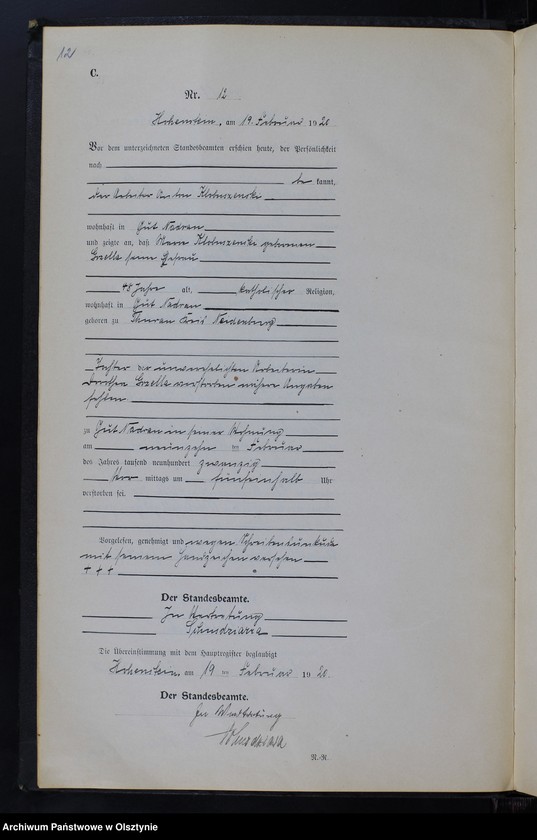 12
C.
Nr. 12
Hohenstein, am 19. Februar 1920
Vor dem unterzeichneten Standesbeamten erschien heute, der Persönlichkeit
nach
be kannt,
der Arbeiter Anton
wohnhaft in Gut Nadrau
und zeigte an, daß geborenen
seine Ehefrau
48 Jahre alt, katholischer Religion,
wohnhaft in Gut Nadrau
geboren zu Thurau Kreis Neidenburg
Tochter der unverehelichten Arbeiterin
verstorben nähere Angaben
fehlen
zu Gut Nadrau in seiner Wohnung
am neunzehn ten Februar
des Jahres tausend neunhundert zwanzig
Vor mittags um fünfeinhalb Uhr
verstorben sei.
Vorgelesen, genehmigt und wegen Schreibensunkunde
mit seinem Handzeichen versehen
+ + +
Der Standesbeamte.
In Vertretung
Die Übereinstimmung mit dem Hauptregister beglaubigt
Hohenstein, am 19 ten Februar 1920.
Der Standesbeamte.
In Vertretung
N.-R.
Archiwum Państwowe w Olsztynie